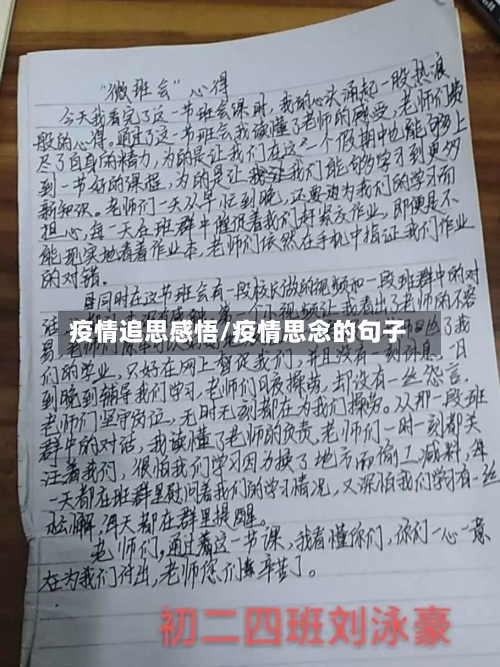 “微班会”心得
今天我看完了这一节班会课时，我的心头涌起一股热浪
般的心得。通过了这一节班会我读懂了老师的感受，老师们费
尽了自身的精力，为的是让我们在这一个假期中也能够上
到一节好的课程，为的是让我们能够学习到更好
新知识。老师们一天从早忙到晚，还要边为我们的学习而
担心，每一天在班群中催促着我们赶紧交作业，即便是不
能现实地看着作业本，老师们依然在手机中指证我们作业
的对错。
且同时在这节班会有一段校长做的视频和一段班群中的对
疫情追思感悟/疫情思念的句子
们的学业，只好在网上督促我们，并且没有一刻休息。一日
到晚到辅导我们学习，老师们日夜操劳，却没有一丝怨言，
老师们坚守岗位，无时无刻都在为我们操劳。从那一段班
群中的对话，我读懂了老师的负责，老师们一时一刻都关
注着我们，很怕我们学习因为换了地方而偷工减料，每
一天都在班群里慰问着我们的学习情况，又深怕我们学习有一丝
松懈，每天都在群里提醒。
老师们，通过着这一节课，我看懂你们，你们一心一意
在为我们付出，老师您们辛苦了。
初二四班刘泳豪